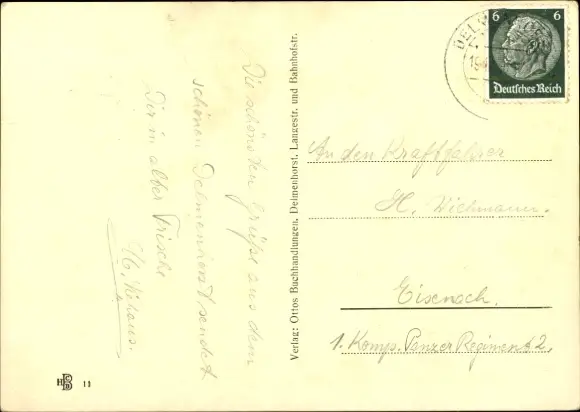 Die schönsten Grüße aus dem
schönen Delmenhorst sendet
Dir in alter Frische
Verlag: Ottos Buchhandlungen, Delmenhorst, Langestr. und Bahnhofstr.
6 6
Deutsches Reich
An den Kraftfahrer
H. Wichmann.
Eisenach.
1. Komp. Panzer Regiment 2,
HB 11